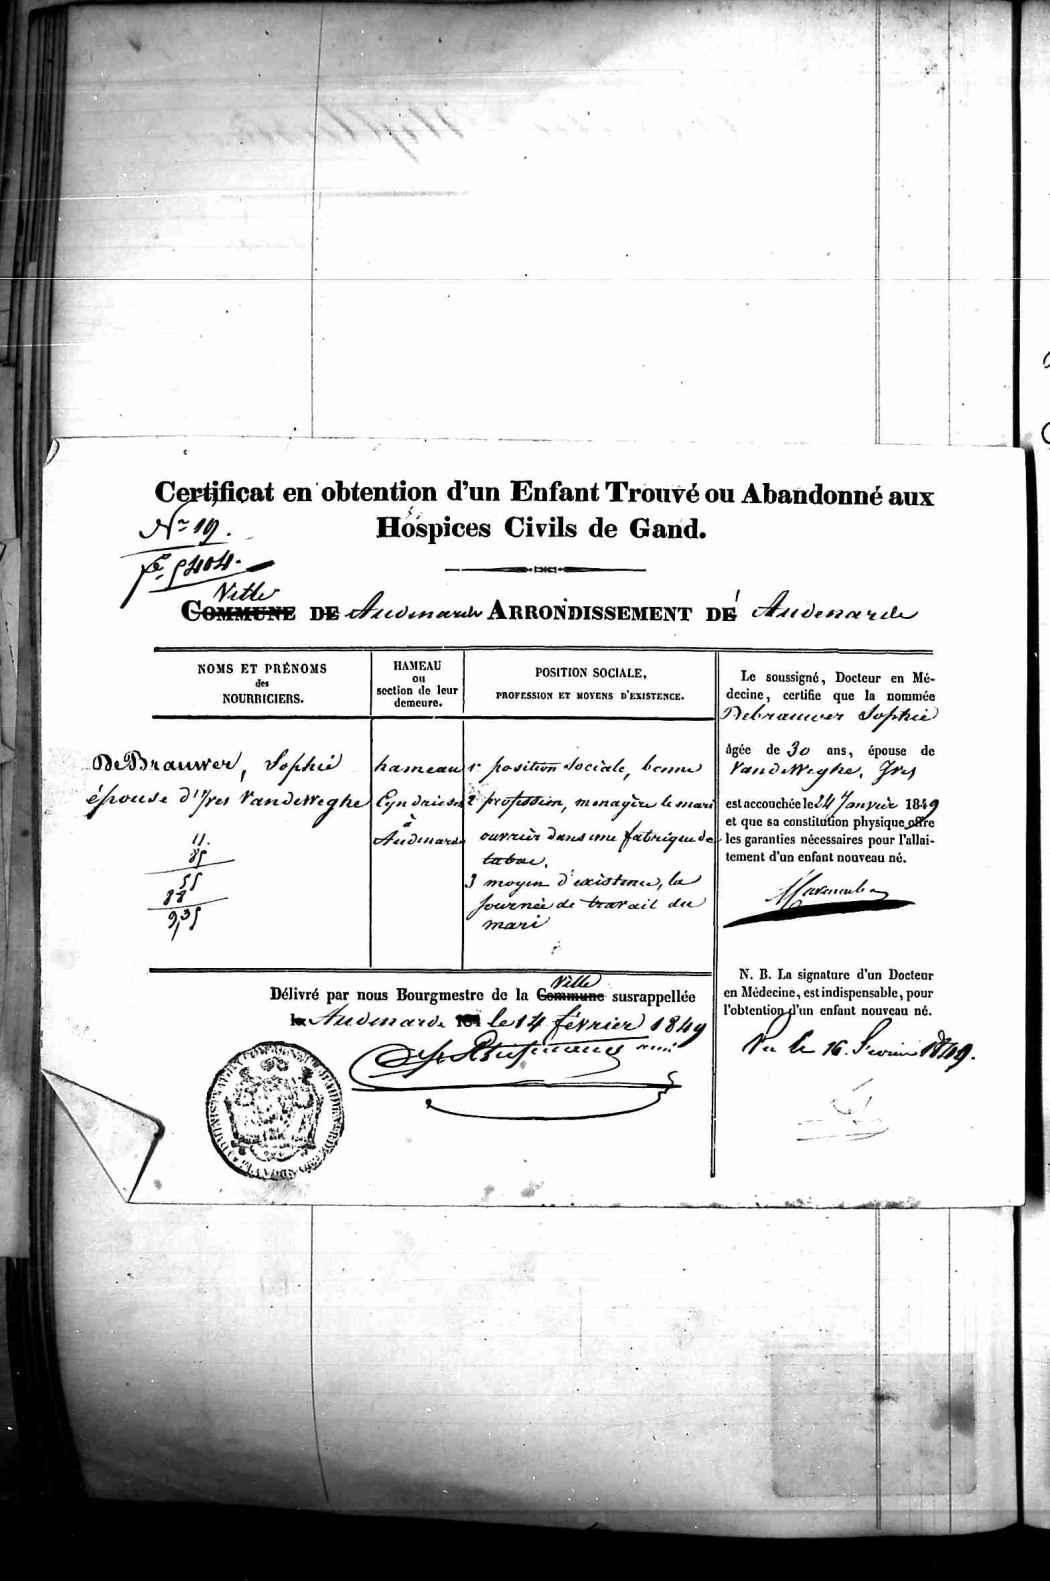 Certificat en obtention d'un Enfant Trouvé ou Abandonné aux
Hospices Civils de Gand.
Nº 19.
fº 5404.
Ville
COMMUNE DE Audenarde ARRONDISSEMENT DE Audenarde
NOMS ET PRÉNOMS
des
NOURRICIERS.
HAMEAU
ou
section de leur
demeure.
POSITION SOCIALE,
PROFESSION ET MOYENS D'EXISTENCE.
DeBrauwer, Sophie
épouse d'Yves VandeWeghe
11.
85
55
88
9,35
hameau
Eyndriesch
à
Audenarde
1º position sociale, bonne
2 profession, menagère le mari
ouvrier dans une fabrique de
tabac.
3 moyen d'existence, la
journée de travail du
mari
Le soussigné, Docteur en Mé-
decine, certifie que la nommée
Debrauwer Sophie
âgée de 30 ans, épouse de
VandeWeghe, Yves
est accouchée le 24 Janvier 1849
et que sa constitution physique offre
les garanties nécessaires pour l'allai-
tement d'un enfant nouveau né.
N. B. La signature d'un Docteur
en Médecine, est indispensable, pour
l'obtention d'un enfant nouveau né.
Vu le 16. Fevrier 1849.
Ville
Délivré par nous Bourgmestre de la Commune susrappellée
Audenarde le 14 février 1849